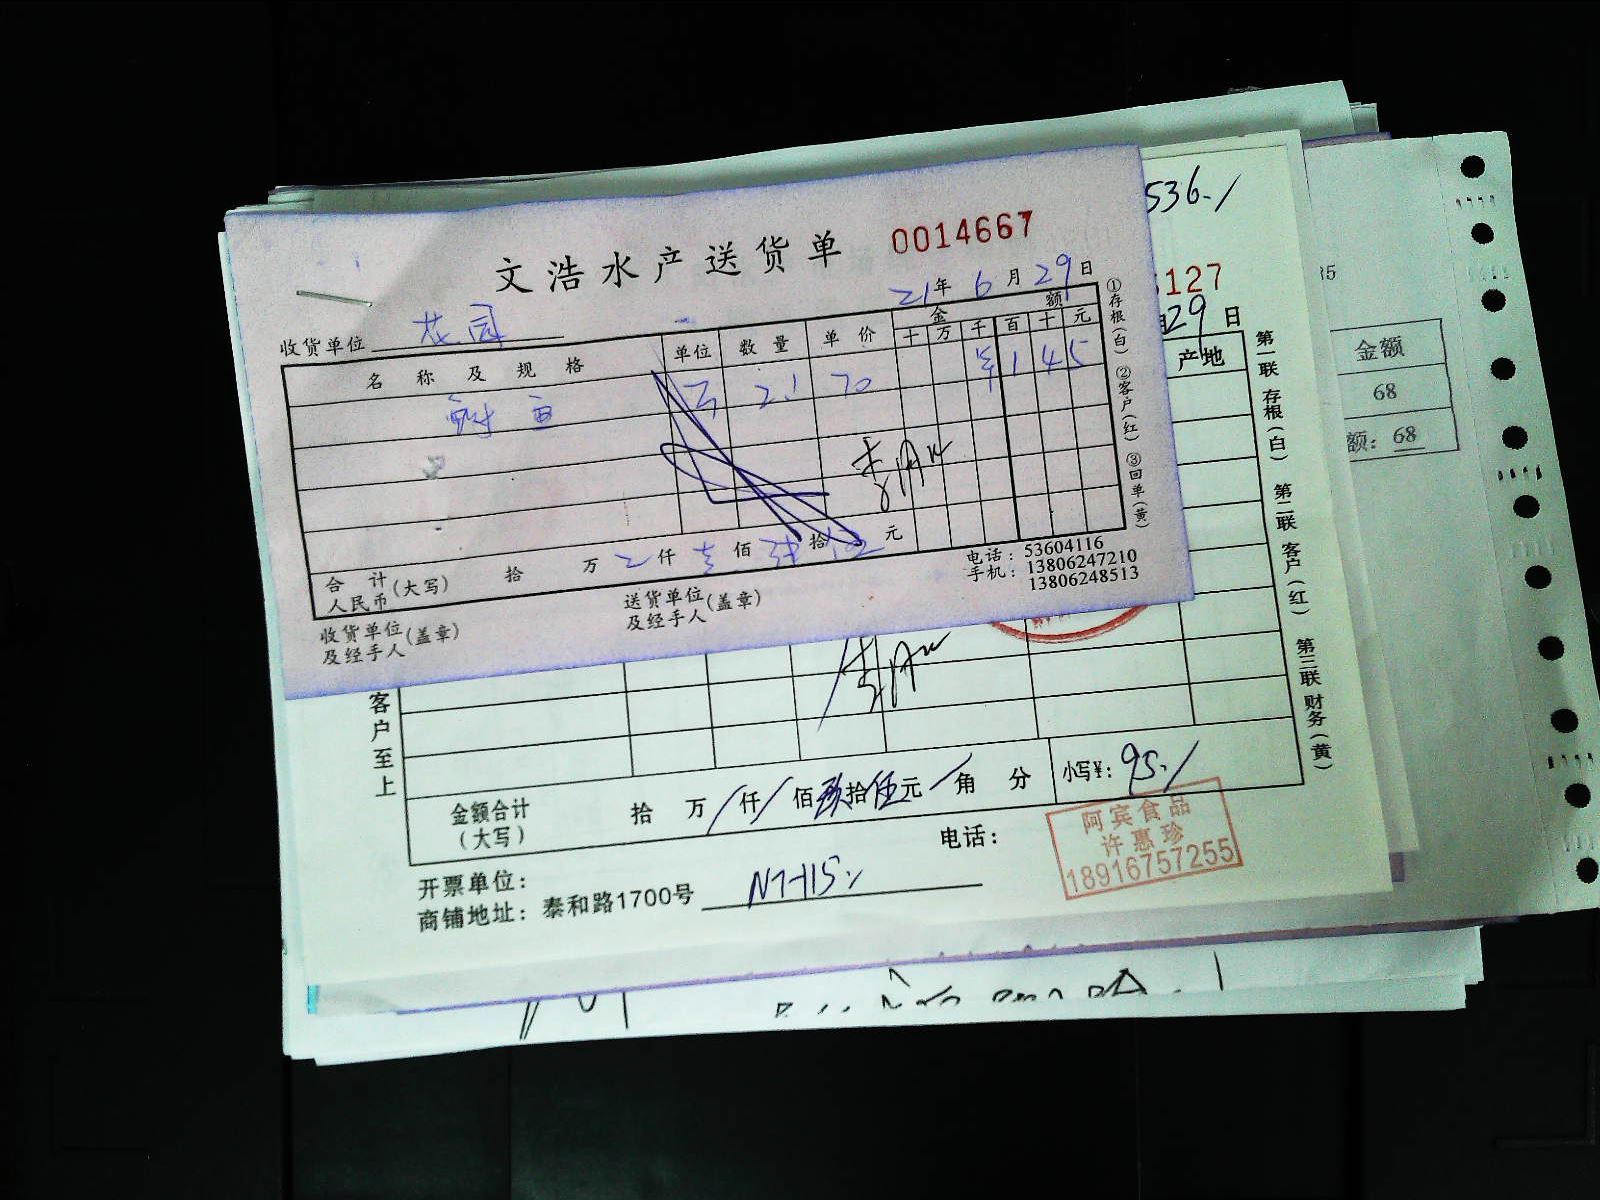 536./
文浩水产送货单 0014667
127
21年6月29日
29日
收货单位 花园
名称及规格 单位 数量 单价 金额
十万千百十元
2.1 70 ¥145
产地
金额
68
额: 68
①存根(白) ②客户(红) ③回单(黄)
第一联 存根(白) 第二联 客户(红) 第三联 财务(黄)
合计 人民币(大写) 拾 万 仟 佰 拾 元
电话: 53604116
手机: 13806247210
13806248513
收货单位及经手人(盖章)
送货单位及经手人(盖章)
客户至上
金额合计(大写) 拾 万 仟 佰 拾伍元 角 分 小写¥: 95./
开票单位:
电话:
商铺地址: 泰和路1700号
阿宾食品
许惠珍
18916757255